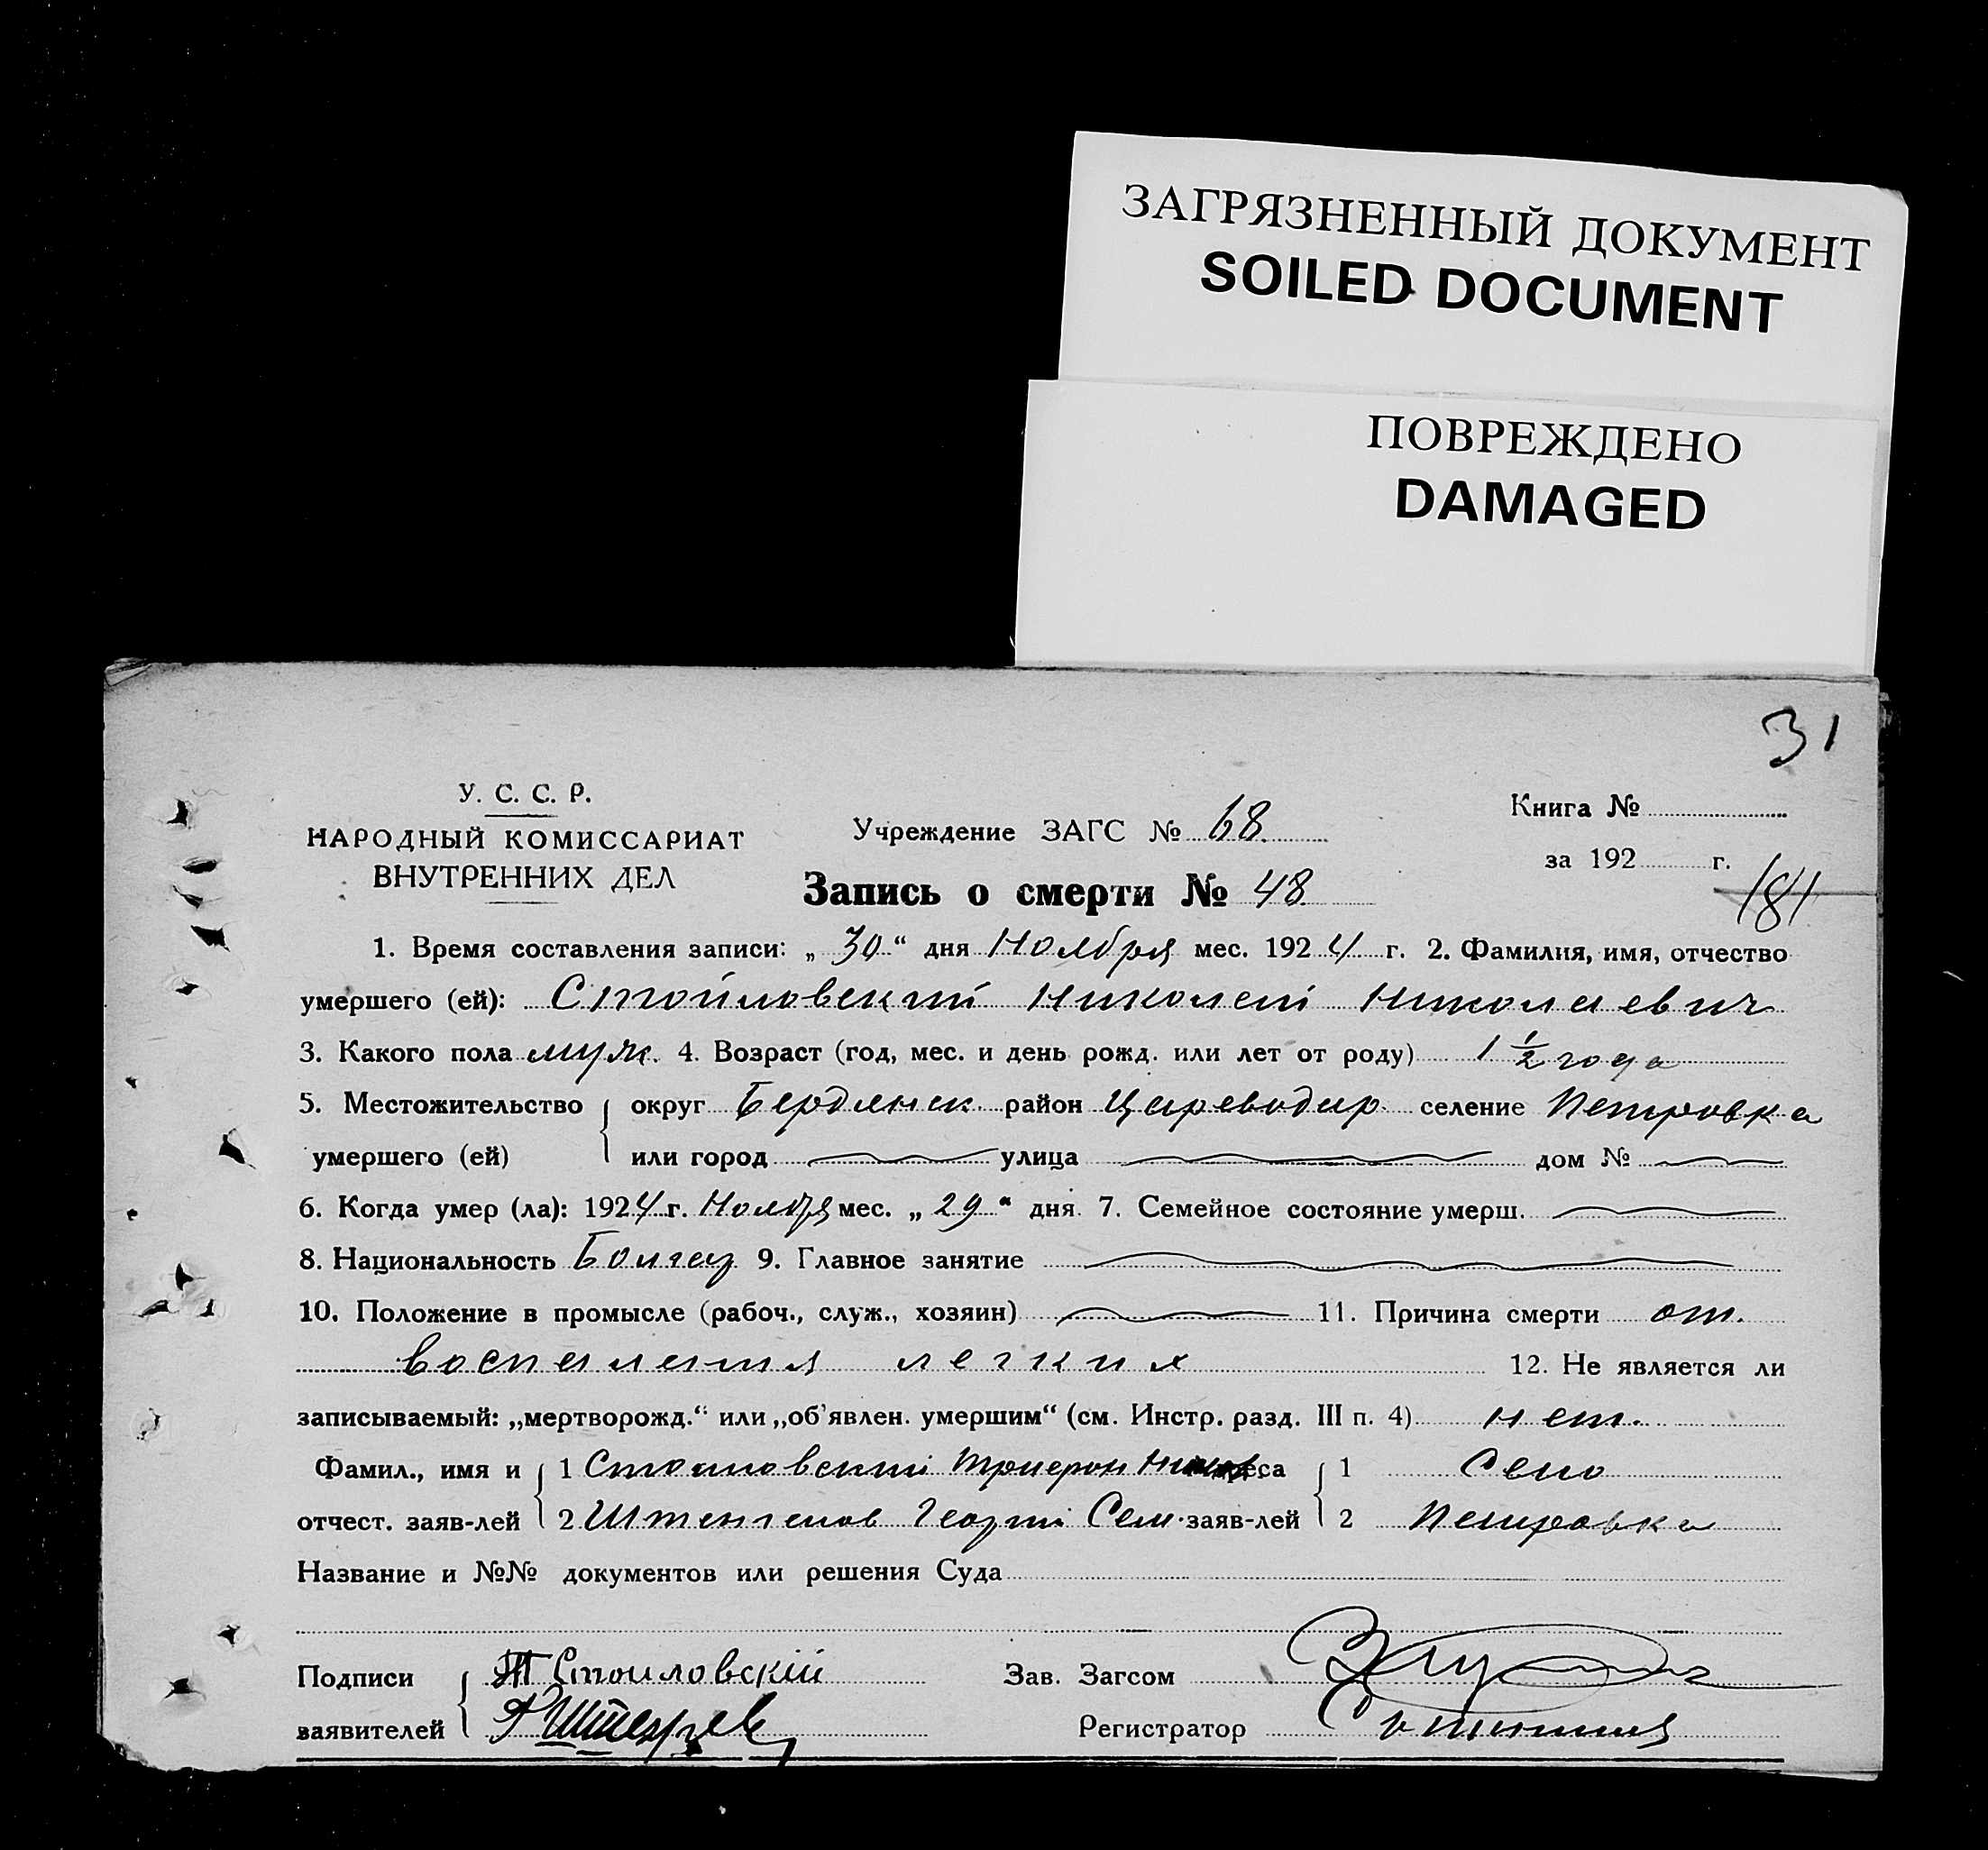 ЗАГРЯЗНЕННЫЙ ДОКУМЕНТ
SOILED DOCUMENT
ПОВРЕЖДЕНО
DAMAGED
31
У. С. С. Р.
НАРОДНЫЙ КОМИССАРИАТ
ВНУТРЕННИХ ДЕЛ
Учреждение ЗАГС № 68
Книга №
за 192 г.
181
Запись о смерти № 48
1. Время составления записи: „30“ дня Ноября мес. 1924 г. 2. Фамилия, имя, отчество
умершего (ей): Стойловский Николай Николаевич
3. Какого пола муж. 4. Возраст (год, мес. и день рожд. или лет от роду) 1 1/2 года
5. Местожительство округ Бердянск. район Цареводар. селение Петровка
умершего (ей) или город улица дом №
6. Когда умер (ла): 1924 г. Ноября мес. „29“ дня. 7. Семейное состояние умерш.
8. Национальность Болгар 9. Главное занятие
10. Положение в промысле (рабоч., служ., хозяин) 11. Причина смерти от.
воспаления легких 12. Не является ли
записываемый: „мертворожд.“ или „об'явлен. умершим“ (см. Инстр. разд. III п. 4) нет.
Фамил., имя и 1 Стоиловский Трифон 1 Село
отчест. заяв-лей 2 Георгий Сем. заяв-лей 2 Петровка
Название и №№ документов или решения Суда
Подписи Т Стоиловскій Зав. Загсом
заявителей Регистратор